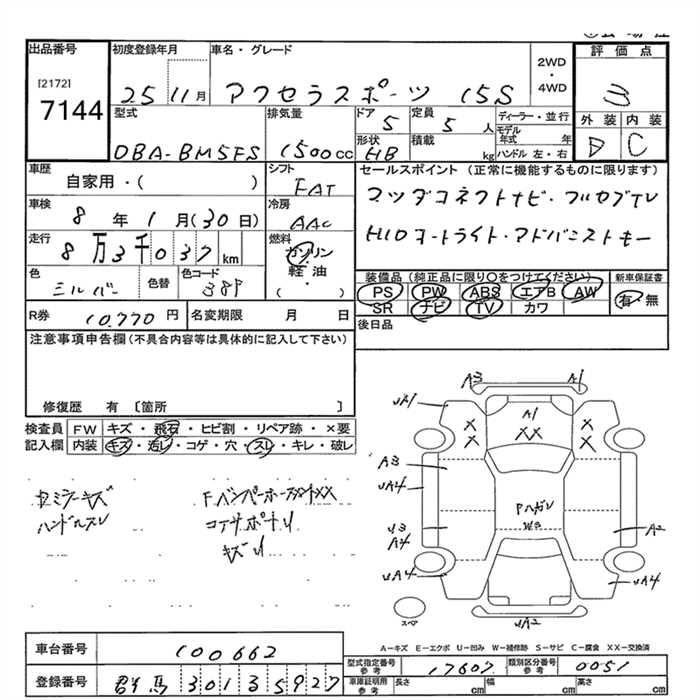 出品番号
[2172]
7144
初度登録年月
25 11月
車名・グレード
アクセラスポーツ 15S
2WD
・
4WD
評価点
3
外装 内装
D C
型式
DBA-BM5FS
排気量
1500cc
ドア
5
定員
5人
形状
HB
積載
kg
ディーラー・並行
モデル年式 年
ハンドル 左・右
車歴
自家用・( )
シフト
FAT
車検
8年1月(30日)
冷房
AAC
走行
8万3千037km
燃料
ガソリン
・
軽油
( )
色
シルバー
色替
色コード
38P
セールスポイント (正常に機能するものに限ります)
マツダコネクトナビ・フルセグTV
HIDヨートライト・アドバンストキー
装備品(純正品に限り○をつけてください)
PS PW ABS エアB AW
SR ナビ TV カワ
新車保証書
有・無
R券
10,770円
名変期限 月 日
後日品
注意事項申告欄(不具合内容等は具体的に記入して下さい)
修復歴 有 〔箇所 〕
検査員記入欄
FW キズ・飛石・ヒビ割・リペア跡・×要
内装 キズ・汚レ・コゲ・穴・スレ・キレ・破レ
ハンドルスレ
キズU
A3 A1
UA1
A1
XX
X X
X X
A3
UA4
Pハガレ
W3
U3
A4
A2
UA4
UA4
UA2
スペア
A-キズ E-エクボ U-凹み W-補修跡 S-サビ C-腐食 XX-交換済
車台番号
100662
登録番号
群馬 301 3 5927
型式指定番号 参考
17607
類別区分番号 参考
0051
車庫証明用 参考
長さ cm
幅 cm
高さ cm